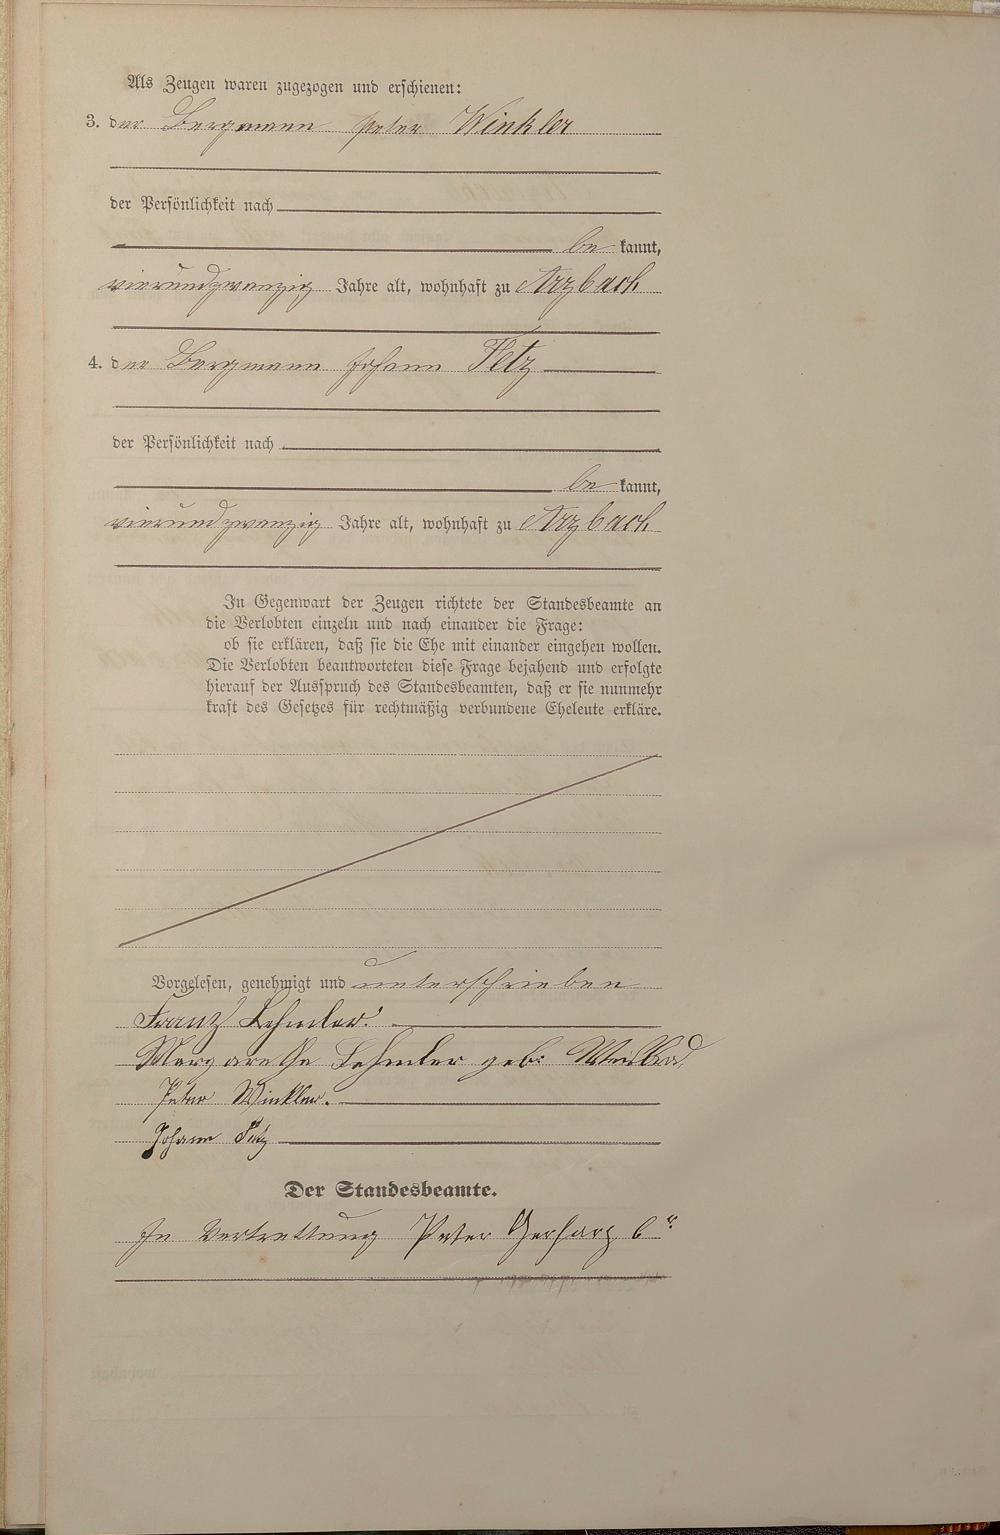 Als Zeugen waren zugezogen und erschienen:
3. der Bergmann Peter Winkler
der Persönlichkeit nach
be kannt,
vierundzwanzig Jahre alt, wohnhaft zu Arzbach
4. der Bergmann Johann Fetz
der Persönlichkeit nach
be kannt,
vierundzwanzig Jahre alt, wohnhaft zu Arzbach
In Gegenwart der Zeugen richtete der Standesbeamte an
die Verlobten einzeln und nach einander die Frage:
ob sie erklären, daß sie die Ehe mit einander eingehen wollen.
Die Verlobten beantworteten diese Frage bejahend und erfolgte
hierauf der Ausspruch des Standesbeamten, daß er sie nunmehr
kraft des Gesetzes für rechtmäßig verbundene Eheleute erkläre.
Vorgelesen, genehmigt und unterschrieben
Franz Lehmler.
Margarethe Lehmler geb:
Peter Winkler.
Johann Fetz
Der Standesbeamte.
In Vertrettung Peter Gerharz